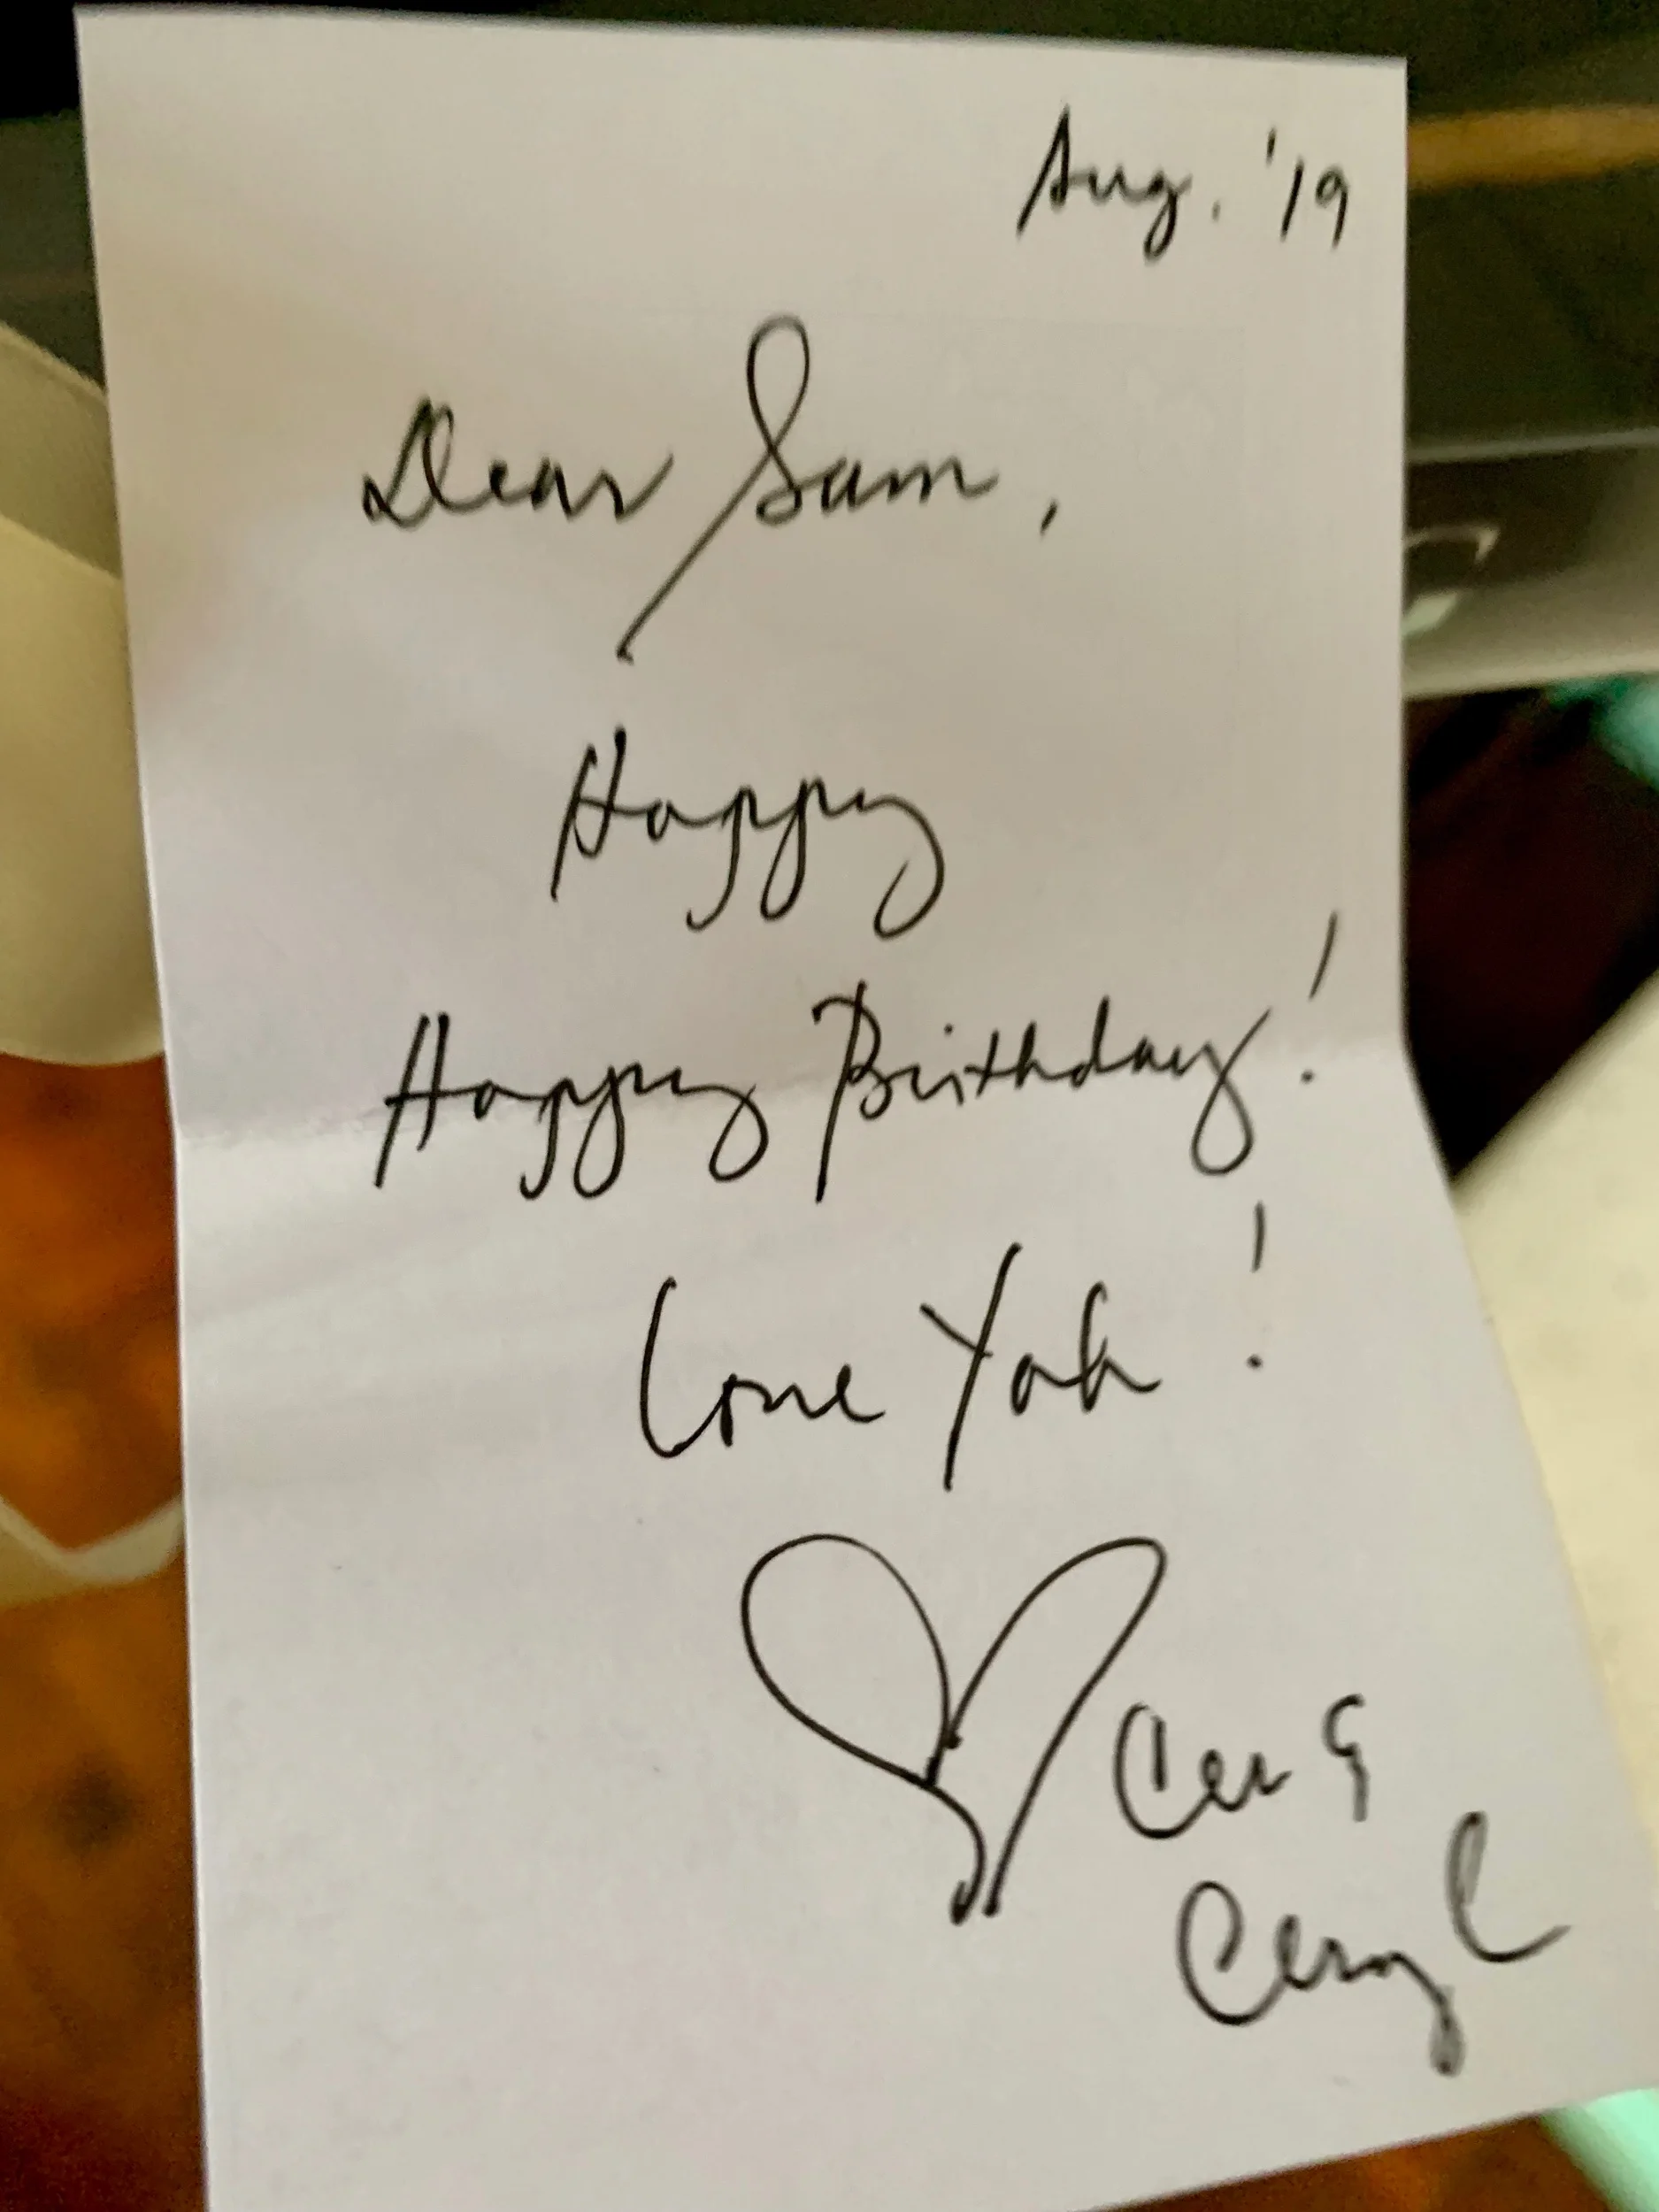 Aug. '19
Dear Sam,
Happy
Happy Birthday!
Love Yah!
Cer &
Ceryl